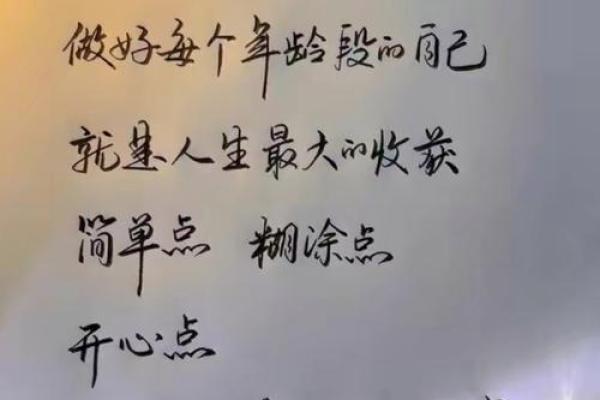 做好每个年龄段的自己
就是人生最大的收获
简单点 糊涂点
开心点